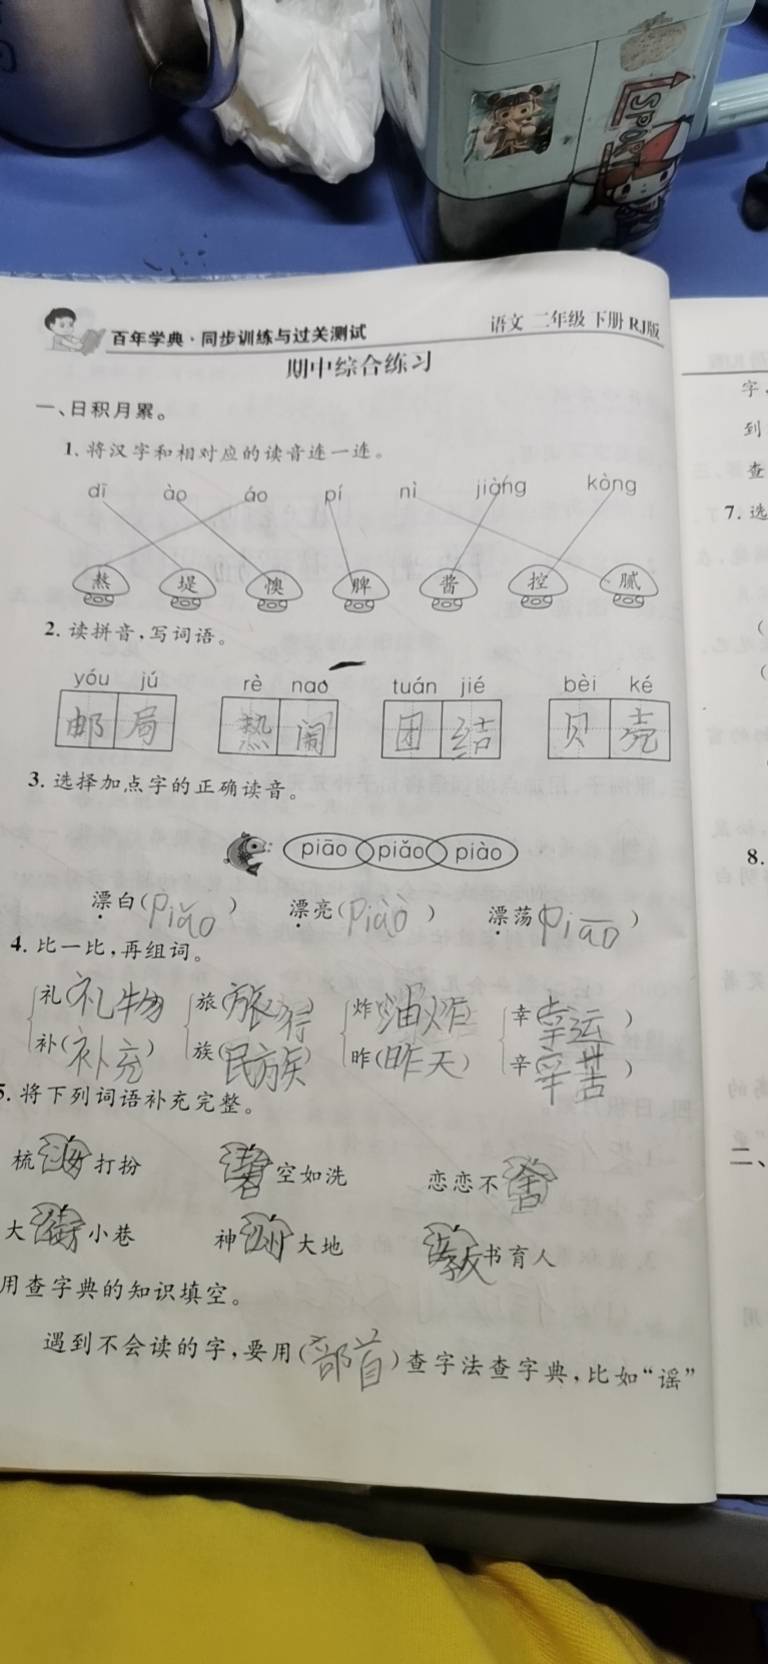 百年学典·同步训练与过关测试
语文 二年级 下册 RJ版
期中综合练习
一、日积月累。
1. 将汉字和相对应的读音连一连。
dī ào áo pí nì jiàng kòng
熬 堤 懊 脾 酱 控 腻
2. 读拼音,写词语。
yóu jú rè nao tuán jié bèi ké
邮局 热闹 团结 贝壳
3. 选择加点字的正确读音。
piāo piǎo piào
漂白(piǎo) 漂亮(piào) 漂荡(piāo)
4. 比一比,再组词。
礼(礼物) 旅(旅行) 炸(油炸) 幸(幸运)
补(补充) 族(民族) 昨(昨天) 辛(辛苦)
5. 将下列词语补充完整。
梳妆打扮 空如洗 恋恋不舍
大街小巷 神州大地 教书育人
用查字典的知识填空。
遇到不会读的字,要用(部首)查字法查字典,比如“谣”
字,
到
查
7. 选
8.
二、